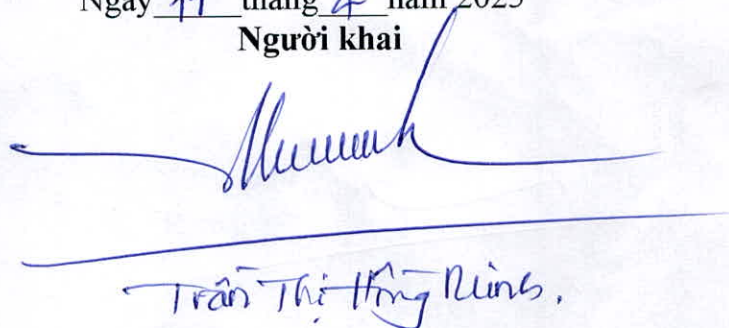 Ngày 11 tháng 4 năm 2023
Người khai
Trần Thị Hồng Minh.